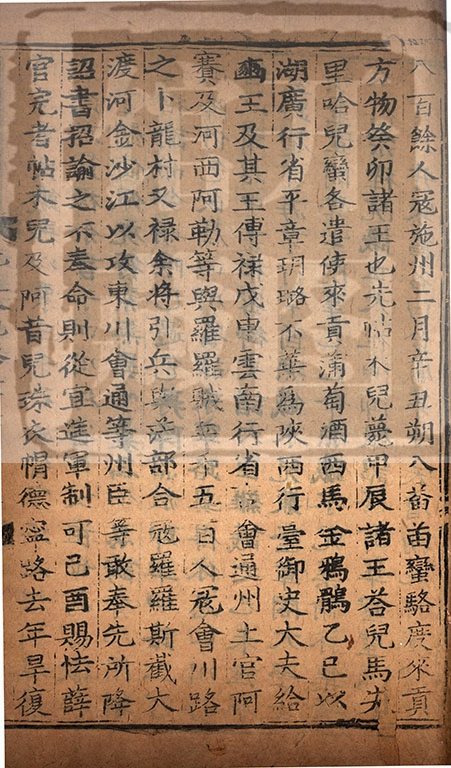 八百餘人寇施州二月辛丑朔八畨苗蠻駱度來貢
方物癸卯諸王也先帖木兒薨甲辰諸王荅兒馬失
里哈兒蠻各遣使來貢蒲萄酒西馬金鴉鶻乙巳以
湖廣行省平章玥璐不花為陝西行臺御史大夫給
豳王及其王傅祿戊申雲南行省言會通州土官阿
賽及河西阿勒等與羅羅賊兵千五百人寇會川路
之卜龍村又祿余將引兵與茫部合寇羅羅斯截大
渡河金沙江以攻東川會通等州臣等敢奉先所降
詔書招諭之不奉命則從宜進軍制可己酉賜怯薛
官完者帖木兒及阿昔兒珠衣帽德寧路去年旱復